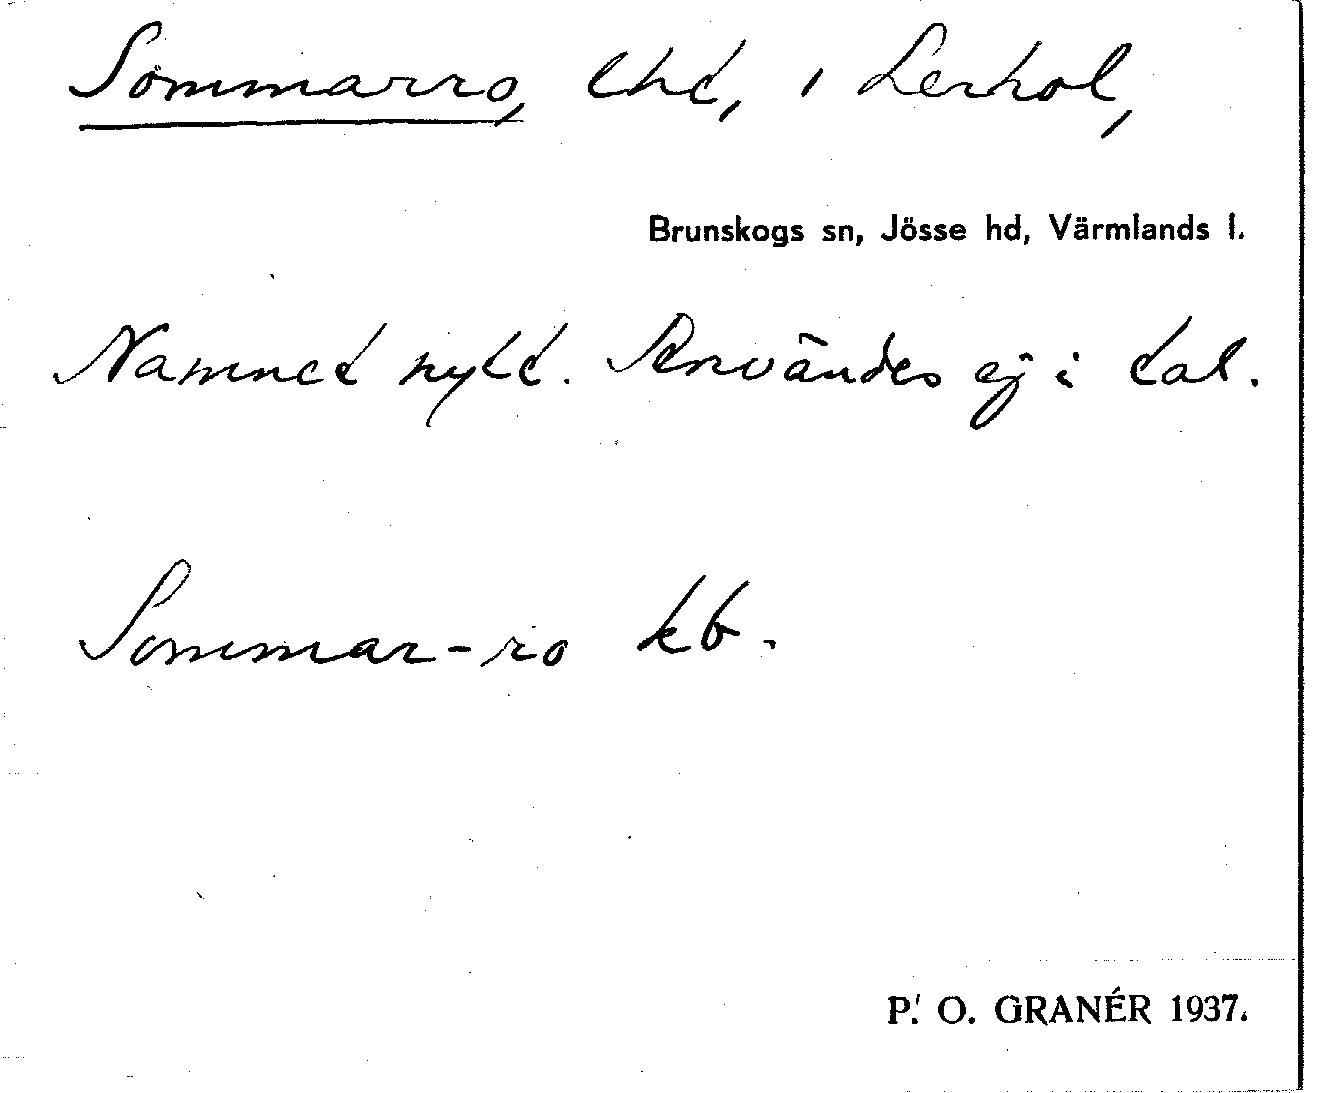 Sommarro, lht, i Lerhol,
Brunskogs sn, Jösse hd, Värmlands l.
Namnet nytt. Användes ej i tal.
Sommar-ro kb.
P. O. GRANÉR 1937.